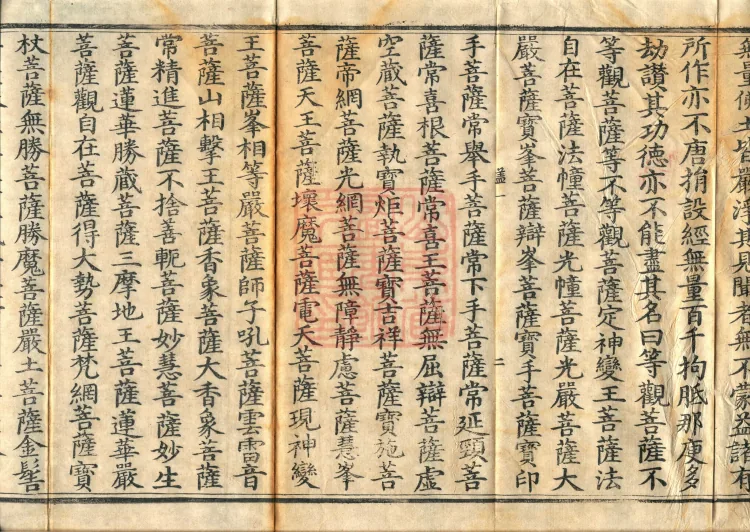 無量佛土皆嚴淨其見聞者無不蒙益諸有
所作亦不唐捐設經無量百千拘胝那庾多
劫讚其功德亦不能盡其名曰等觀菩薩不
等觀菩薩等不等觀菩薩定神變王菩薩法
自在菩薩法幢菩薩光幢菩薩光嚴菩薩大
嚴菩薩寶峯菩薩辯峯菩薩寶手菩薩寶印
一 二
手菩薩常舉手菩薩常下手菩薩常延頸菩
薩常喜根菩薩常喜王菩薩無屈辯菩薩虛
空藏菩薩執寶炬菩薩寶吉祥菩薩寶施菩
薩帝網菩薩光網菩薩無障靜慮菩薩慧峯
菩薩天王菩薩壞魔菩薩電天菩薩現神變
王菩薩峯相等嚴菩薩師子吼菩薩雲雷音
菩薩山相擊王菩薩香象菩薩大香象菩薩
常精進菩薩不捨善軛菩薩妙慧菩薩妙生
菩薩蓮華勝藏菩薩三摩地王菩薩蓮華嚴
菩薩觀自在菩薩得大勢菩薩梵網菩薩寶
杖菩薩無勝菩薩勝魔菩薩嚴土菩薩金髻